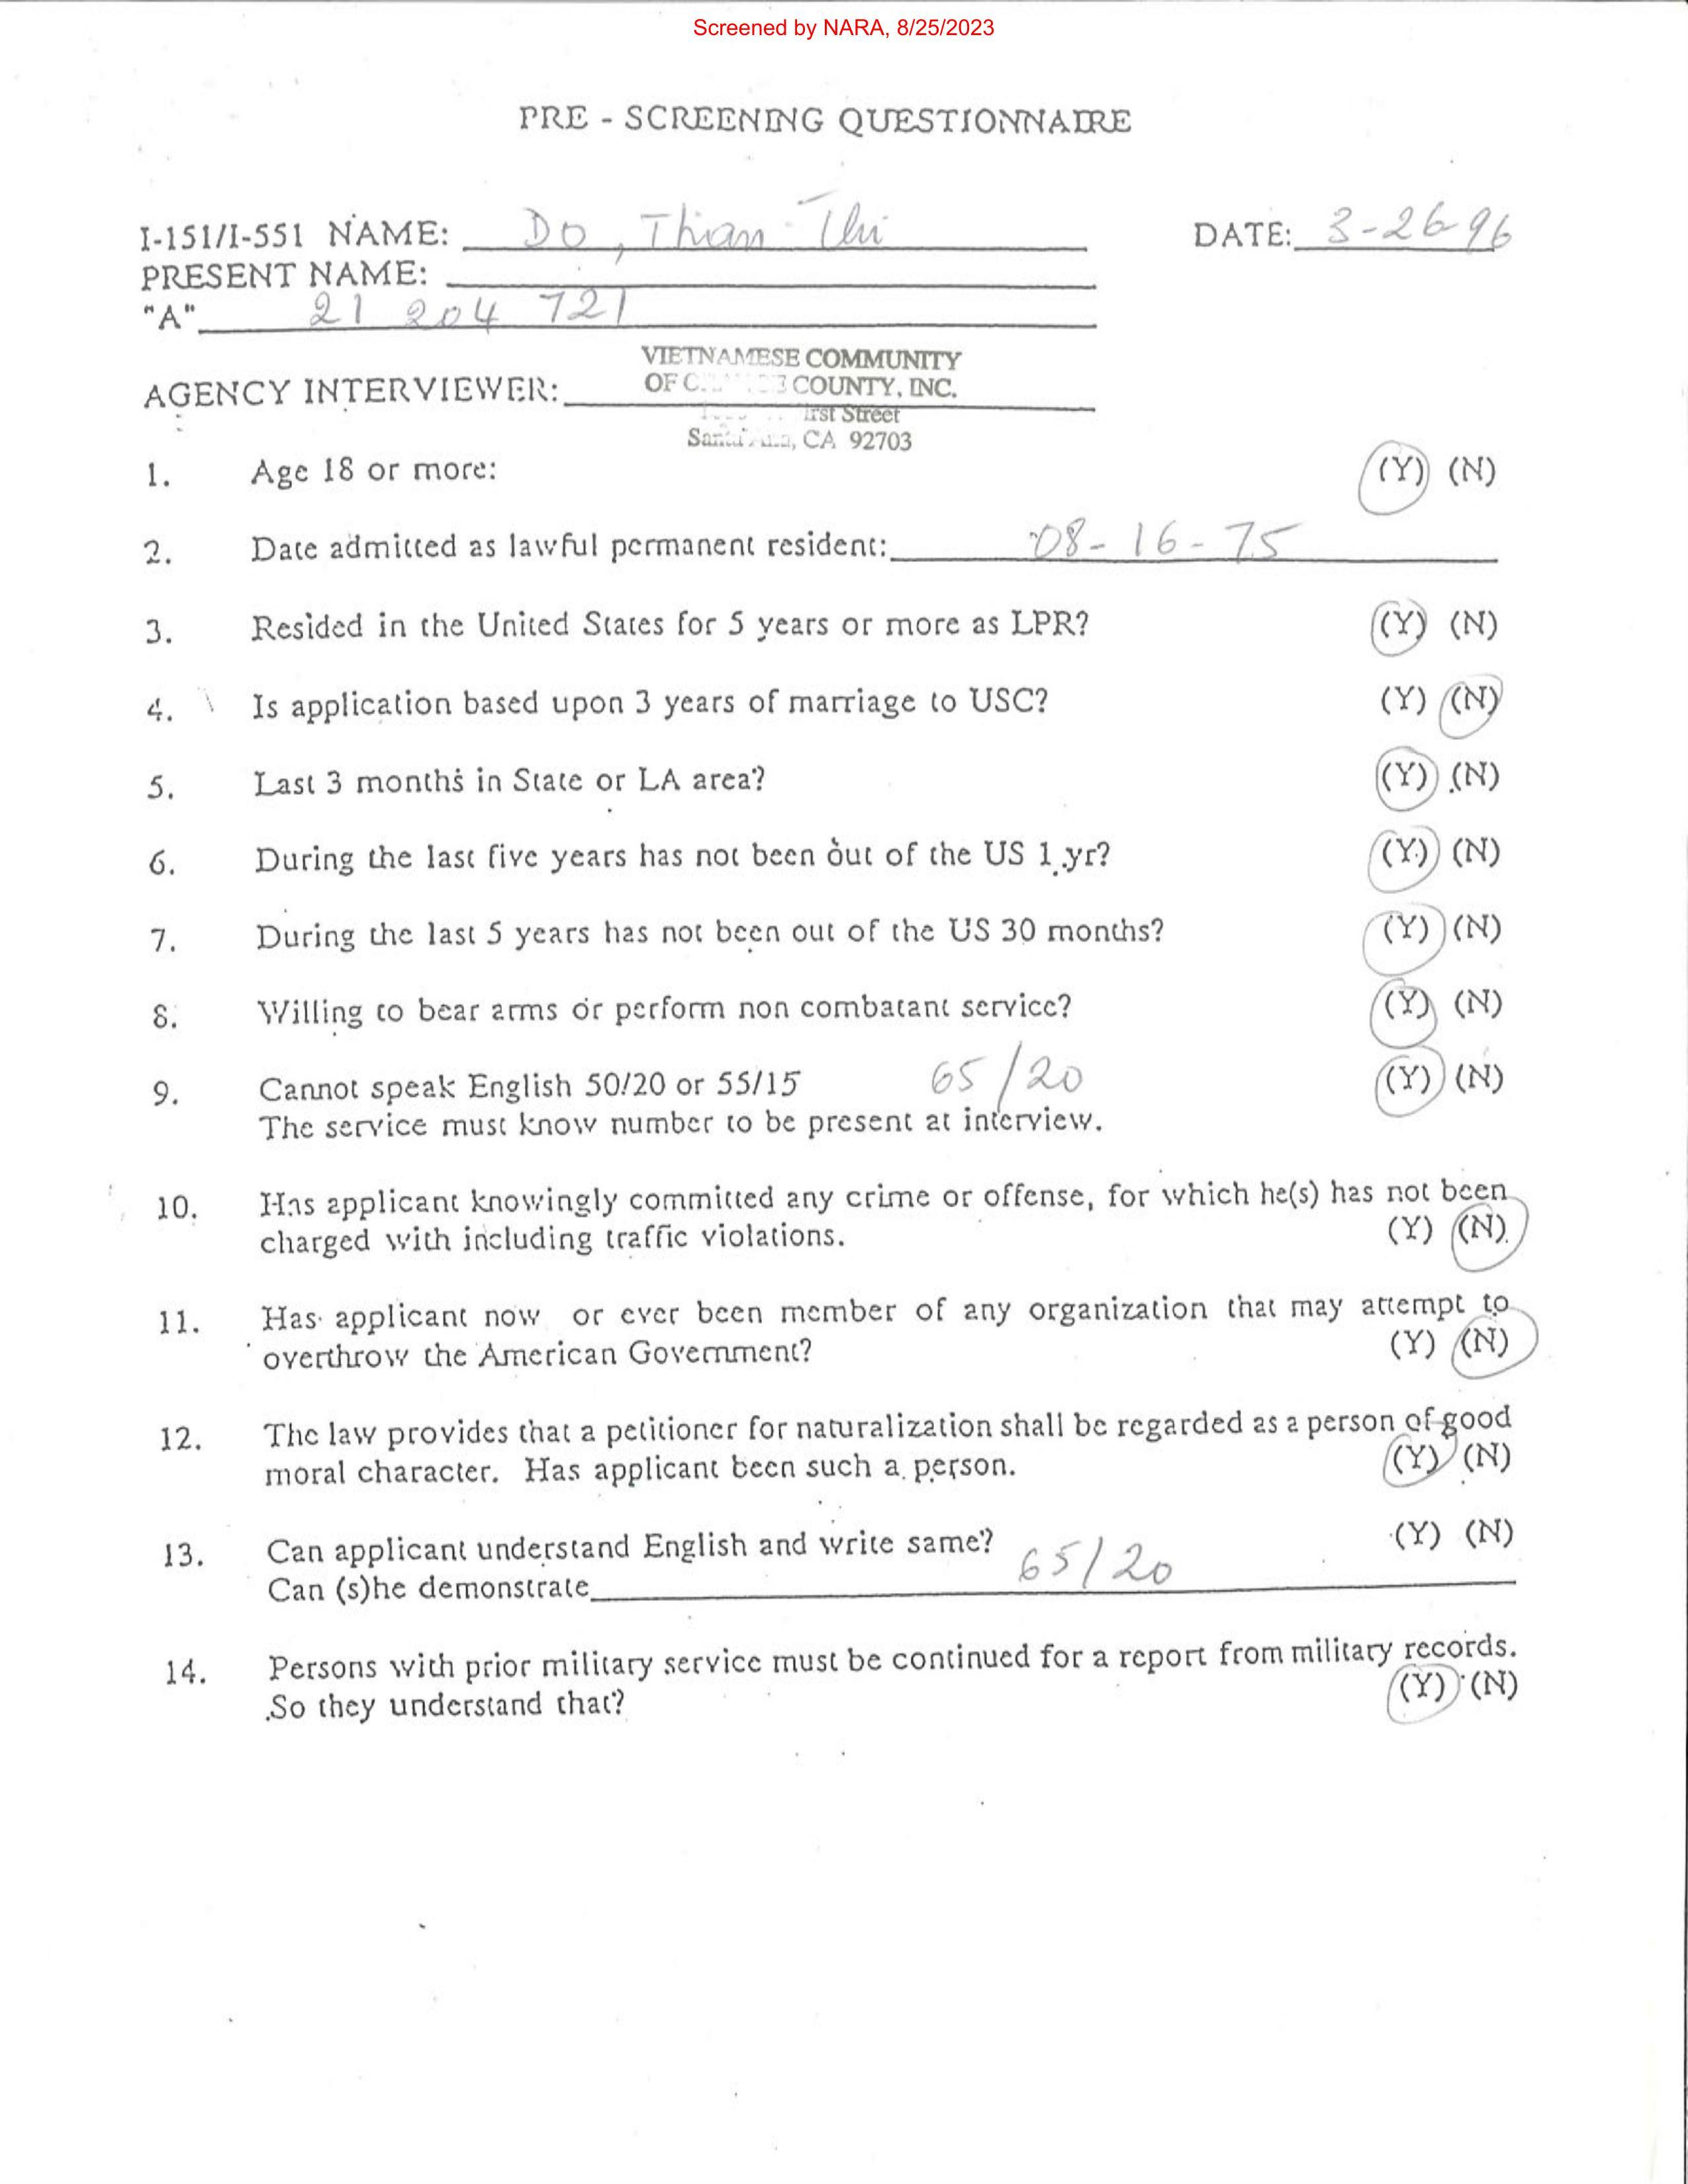 Screened by NARA, 8/25/2023
PRE - SCREENING QUESTIONNAIRE
I-151/I-551 NAME: Do, Thian Thi DATE: 3-26-96
PRESENT NAME:
"A" 21 204 721
VIETNAMESE COMMUNITY
OF COUNTY, INC.
AGENCY INTERVIEWER:
Street
Santa Ana, CA 92703
1. Age 18 or more: (Y) (N)
2. Date admitted as lawful permanent resident: 08-16-75
3. Resided in the United States for 5 years or more as LPR? (Y) (N)
4. Is application based upon 3 years of marriage to USC? (Y) (N)
5. Last 3 months in State or LA area? (Y) (N)
6. During the last five years has not been out of the US 1 yr? (Y) (N)
7. During the last 5 years has not been out of the US 30 months? (Y) (N)
8. Willing to bear arms or perform non combatant service? (Y) (N)
9. Cannot speak English 50/20 or 55/15 65/20 (Y) (N)
The service must know number to be present at interview.
10. Has applicant knowingly committed any crime or offense, for which he(s) has not been
charged with including traffic violations. (Y) (N)
11. Has applicant now or ever been member of any organization that may attempt to
overthrow the American Government? (Y) (N)
12. The law provides that a petitioner for naturalization shall be regarded as a person of good
moral character. Has applicant been such a person. (Y) (N)
13. Can applicant understand English and write same? (Y) (N)
Can (s)he demonstrate 65/20
14. Persons with prior military service must be continued for a report from military records.
So they understand that? (Y) (N)